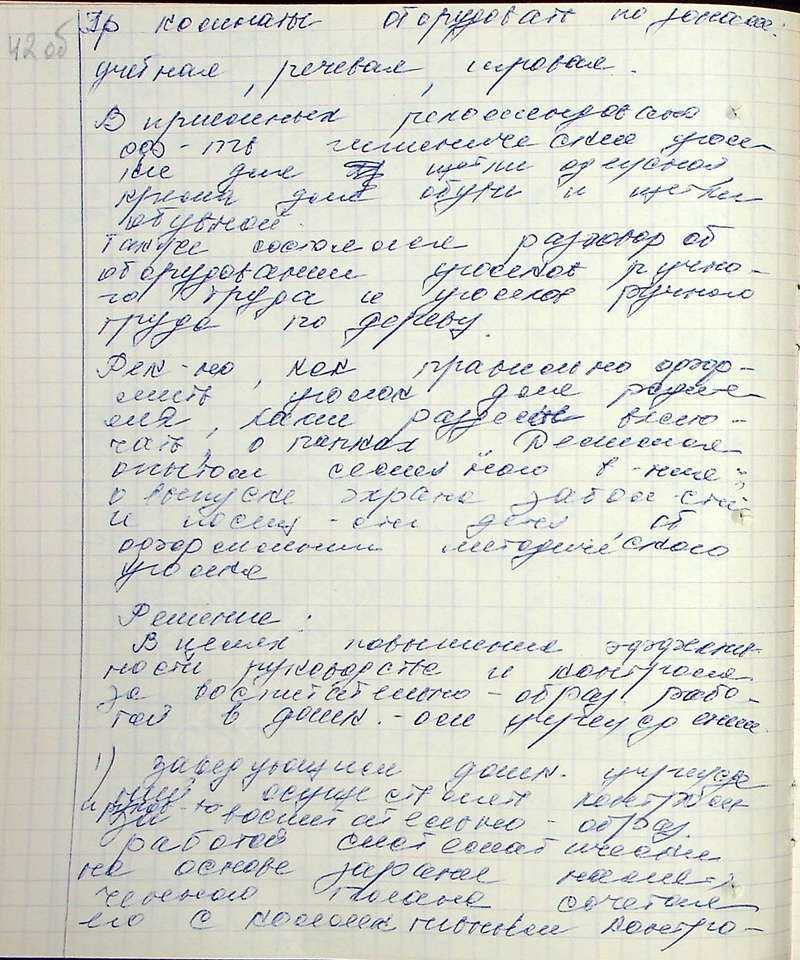 42 об
Гр комнаты оборудовать по зонам:
учебная, речевая, игровая.
В приемных рекомендовано
об-ть гигиенические угол-
ки для щетки одежной,
крема для обуви и щетки
обувной.
Также состоялся разговор об
оборудовании уголков ручно-
го труда и уголков ручного
труда по дереву.
Рек-но, как правильно офор-
мить уголок для родите-
лей, какие разделы вклю-
чать, о папках "Делимся
опытом семейного в-ния";
о выпуске экрана забол-сти
и посещ-сти детей, об
оформлении методического
уголка
Решение:
В целях повышения эффектив-
ности руководства и контроля
за воспитательно-образ. рабо-
той в дошк.-ом учрежд ении
1) заведующим дошк. учрежде
ний осуществлять контроль
и руков-во
за воспитательно-образ.
работой систематически
на основе заранее наме-
ченного плана сочетая
его с коллективным контро-